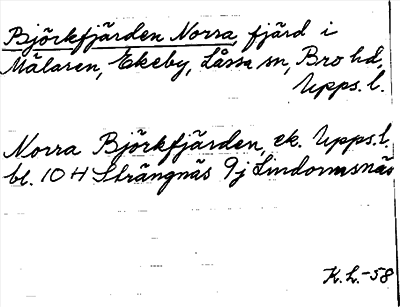 Björkfjärden Norra, fjärd i
Mälaren, Ekeby, Låssa sn, Bro hd,
Upps. l.
Norra Björkfjärden, ek. Upps. l.
bl. 10 H Strängnäs 9j Lindormsnäs
K. L. -58